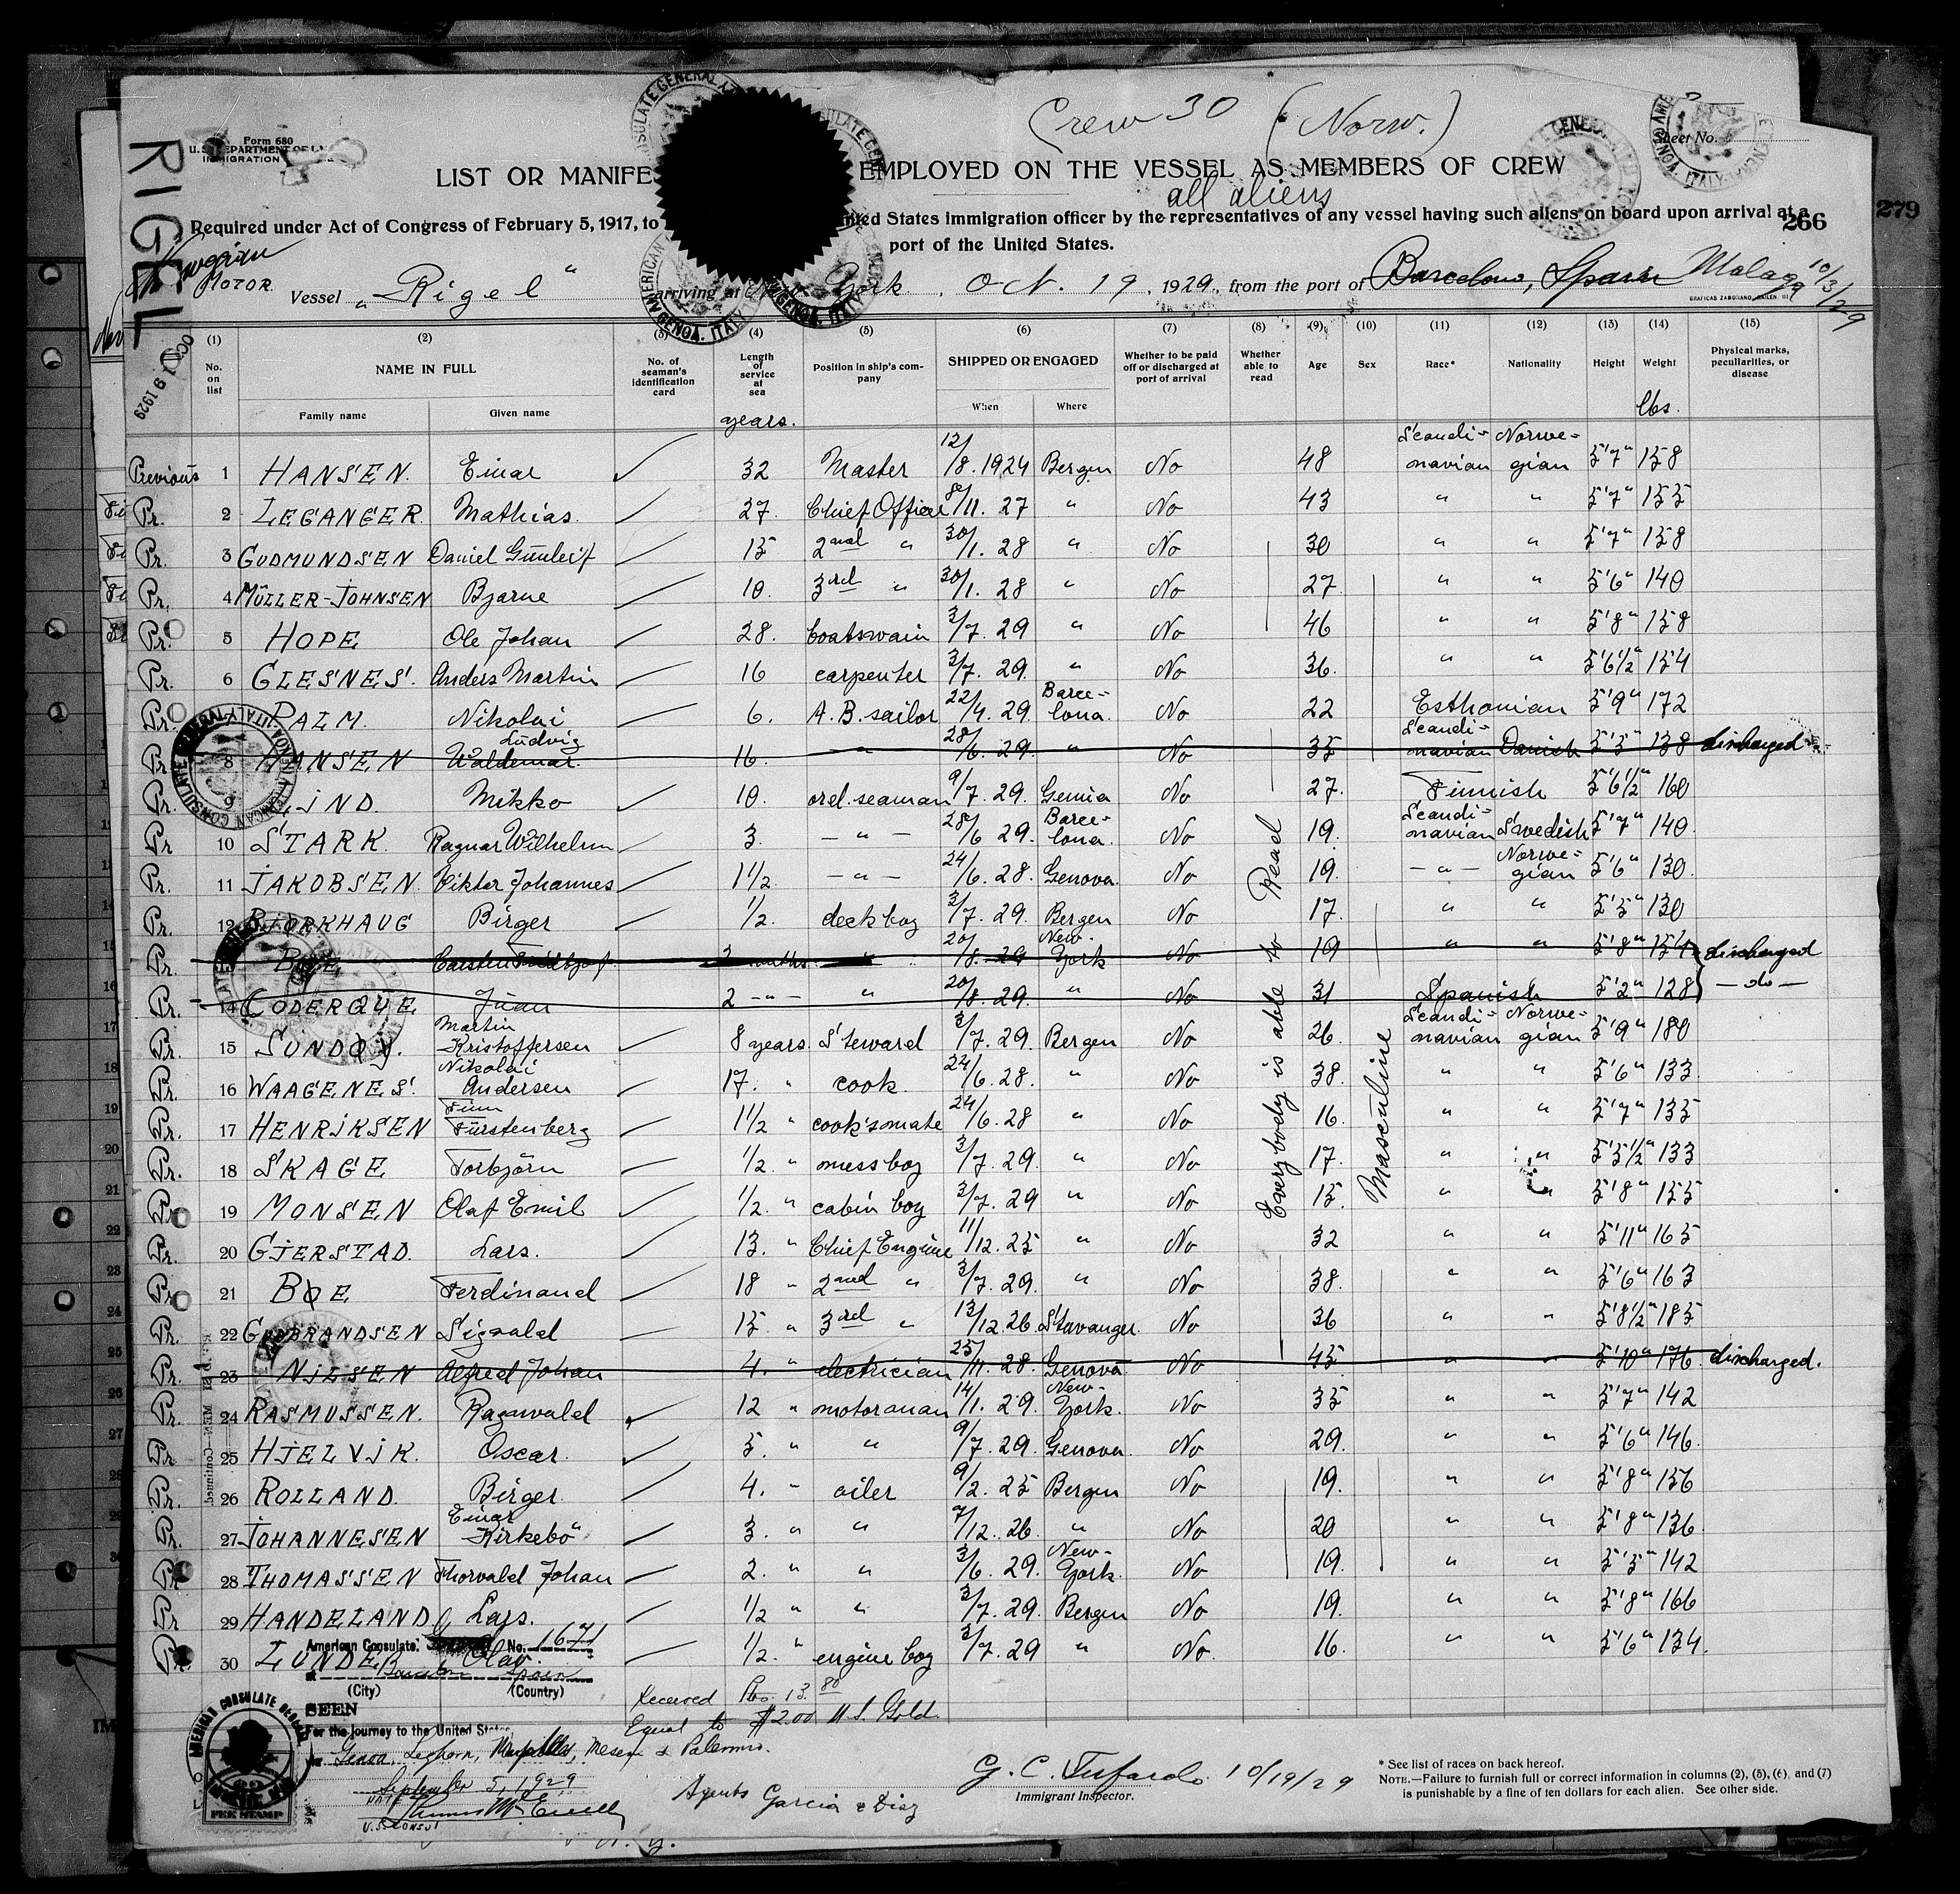 Crew 30 (Norw.)
Form 680
IMMIGRATION
Sheet No.
LIST OR MANIFES EMPLOYED ON THE VESSEL AS MEMBERS OF CREW
all aliens
RIGEL
Required under Act of Congress of February 5, 1917, to United States immigration officer by the representatives of any vessel having such aliens on board upon arrival at a
port of the United States.
266
279
MOTOR
Vessel "Rigel" arriving at York, Oct. 19, 1929, from the port of Barcelona, Spain Malaga 10/3/29
OCT 19 1929
(1) (2) (3) (4) (5) (6) (7) (8) (9) (10) (11) (12) (13) (14) (15)
No. on list NAME IN FULL No. of seaman's identification card Length of service at sea Position in ship's company SHIPPED OR ENGAGED Whether to be paid off or discharged at port of arrival Whether able to read Age Sex Race* Nationality Height Weight Physical marks, peculiarities, or disease
Family name Given name years. When Where lbs.
Previous 1 HANSEN. Einar 32 Master 12/8. 1924 Bergen No 48 Scandinavian Norwegian 5'7" 158
Pr. 2 LEGANGER Mathias. 27. Chief Officer 8/11. 27 " No 43 " " 5'7" 155
Pr. 3 GUDMUNDSEN Daniel Gunleif 15 2nd " 30/1. 28 " No 30 " " 5'7" 158
Pr. 4 MÜLLER-JOHNSEN Bjarne 10. 3rd " 30/1. 28 " No 27 " " 5'6" 140
Pr. 5 HOPE Ole Johan 28. boatswain 3/7. 29 " No 46 " " 5'8" 158
Pr. 6 GLESNES. Anders Martin 16 carpenter 3/7. 29. " No 36. " " 5'6½" 154
Pr. 7 PALM. Nikolai 6. A.B. sailor 22/4. 29. Barcelona. No 22 Esthonian 5'9" 172
Pr. 8 HANSEN Ludvig Waldemar. 16. " 28/6. 29. " No 35 Scandinavian Danish 5'5" 138 discharged
Pr. 9 LIND. Mikko 10. ord. seaman 9/7. 29. Genua No 27. Finnish 5'6½" 160
Pr. 10 STARK. Ragnar Wilhelm 3. - " - 28/6 29. Barcelona. No 19. Scandinavian Swedish 5'7" 140.
Pr. 11 JAKOBSEN. Viktor Johannes 1½. - " - 24/6. 28. Genova. No 19. - " - Norwegian 5'6" 130.
Pr. 12 BJORKHAUG Birger ½. deck boy 3/7. 29. Bergen No 17. " " 5'5" 130
Pr. 13 BOE Carsten Fridtjof 2 months " 20/8. 29 New York No 19 " " 5'8" 154 discharged
Pr. 14 CODERQUE Juan 2 - " - " 20/8. 29. " No 31 Spanish 5'2" 128 - do -
Pr. 15 SUNDÖY. Martin Kristoffersen 8 years. Steward 3/7. 29. Bergen No 26. Scandinavian Norwegian 5'9" 180
Pr. 16 WAAGENES. Nikolai Andersen 17. " cook. 24/6. 28. " No 38. " " 5'6" 133.
Pr. 17 HENRIKSEN Finn Fürstenberg 1½ " cook's mate 24/6. 28 " No 16. " " 5'7" 135
Pr. 18 SKAGE Torbjörn ½. " mess boy 3/7. 29. " No 17. " " 5'5½" 133
Pr. 19 MONSEN Olaf Emil ½. " cabin boy 3/7. 29 " No 15. " " 5'8" 155
Pr. 20 GJERSTAD. Lars. 13. " Chief Engine 11/12. 25 " No 32 " " 5'11" 165
Pr. 21 BØE Ferdinand 18 " 2nd " 3/7. 29. " No 38. " " 5'6" 163
Pr. 22 GUDBRANDSEN Sigvald 15. " 3rd " 13/12. 26. Stavanger. No 36 " " 5'8½" 185
Pr. 23 NILSEN Alfred Johan 4. " electrician 25/11. 28. Genova No 45. " " 5'10" 176. discharged.
Pr. 24 RASMUSSEN. Ragnvald 12 " motorman 14/1. 29. New-York. No 35 " " 5'7" 142
Pr. 25 HJELVIK. Oscar. 5. " " 9/7. 29. Genova. No 29. " " 5'6" 146.
Pr. 26 ROLLAND. Birger. 4. " oiler 9/2. 25 Bergen No 19. " " 5'8" 156
Pr. 27 JOHANNESEN Einar Kirkebö 3. " " 7/12. 26. " No 20 " " 5'8" 136.
Pr. 28 THOMASSEN Thorvald Johan 2. " " 3/6. 29. New-York. No 19. " " 5'5" 142
Pr 29 HANDELAND Lars. ½ " " 3/7. 29. Bergen No 19. " " 5'8" 166
Pr. 30 LUNDE Olav. ½. " engine boy 3/7. 29 " No. 16. " " 5'6" 134.
Everybody is able to Read
Masculine
American Consulate. No. 1671
Barcelona Spain
(City) (Country)
SEEN
For the journey to the United States
Genoa, Leghorn, Marseilles, Messi & Palermo.
September 5, 1929
U.S. CONSUL
FEE STAMP
Received Ptas. 13.80
Equal to $2.00 U.S. Gold.
Agents Garcia & Diaz
G. C. Tufardo 10/19/29
Immigrant Inspector.
* See list of races on back hereof.
NOTE.—Failure to furnish full or correct information in columns (2), (5), (6), and (7)
is punishable by a fine of ten dollars for each alien. See other side.